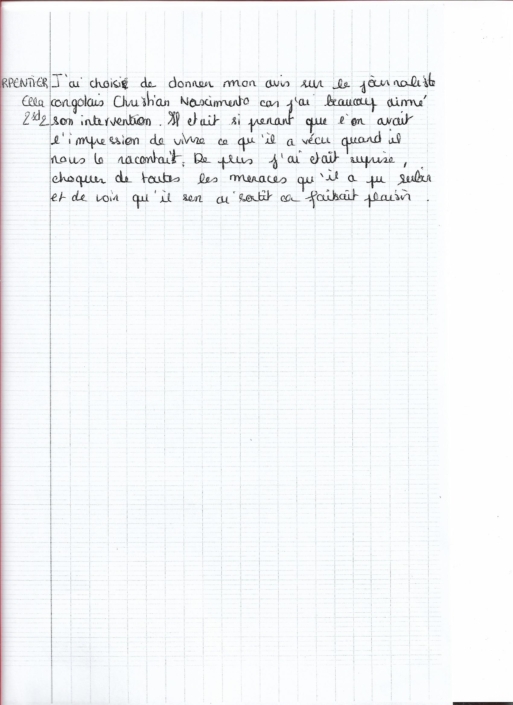 RPENTIER J'ai choisie de donner mon avis sur le journaliste
Cléa congolais Christian Nascimento car j'ai beaucoup aimé
2sd2 son intervention. Il etait si prenant que l'on avait
l'impression de vivre ce qu'il a vécu quand il
nous le racontait. De plus j'ai etait suprise,
choquer de toutes les menaces qu'il a pu subir
et de voir qu'il sen ai sortit ca faisait plaisir.